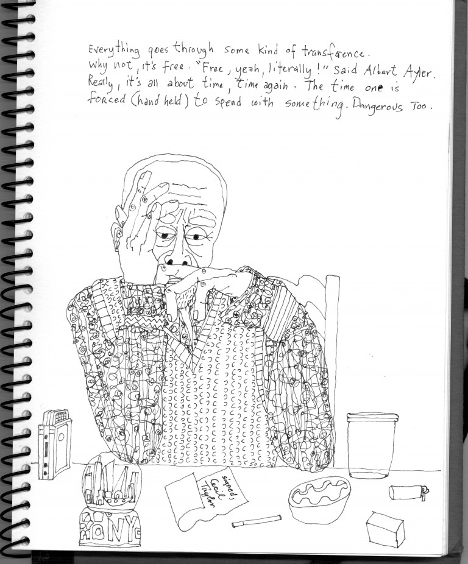 Everything goes through some kind of transference.
Why not, it's free. "Free, yeah, literally!" Said Albert Ayler.
Really, it's all about time, time again. The time one is
forced (hand held) to spend with something. Dangerous Too.
signed,
Cecil
Taylor
NYC